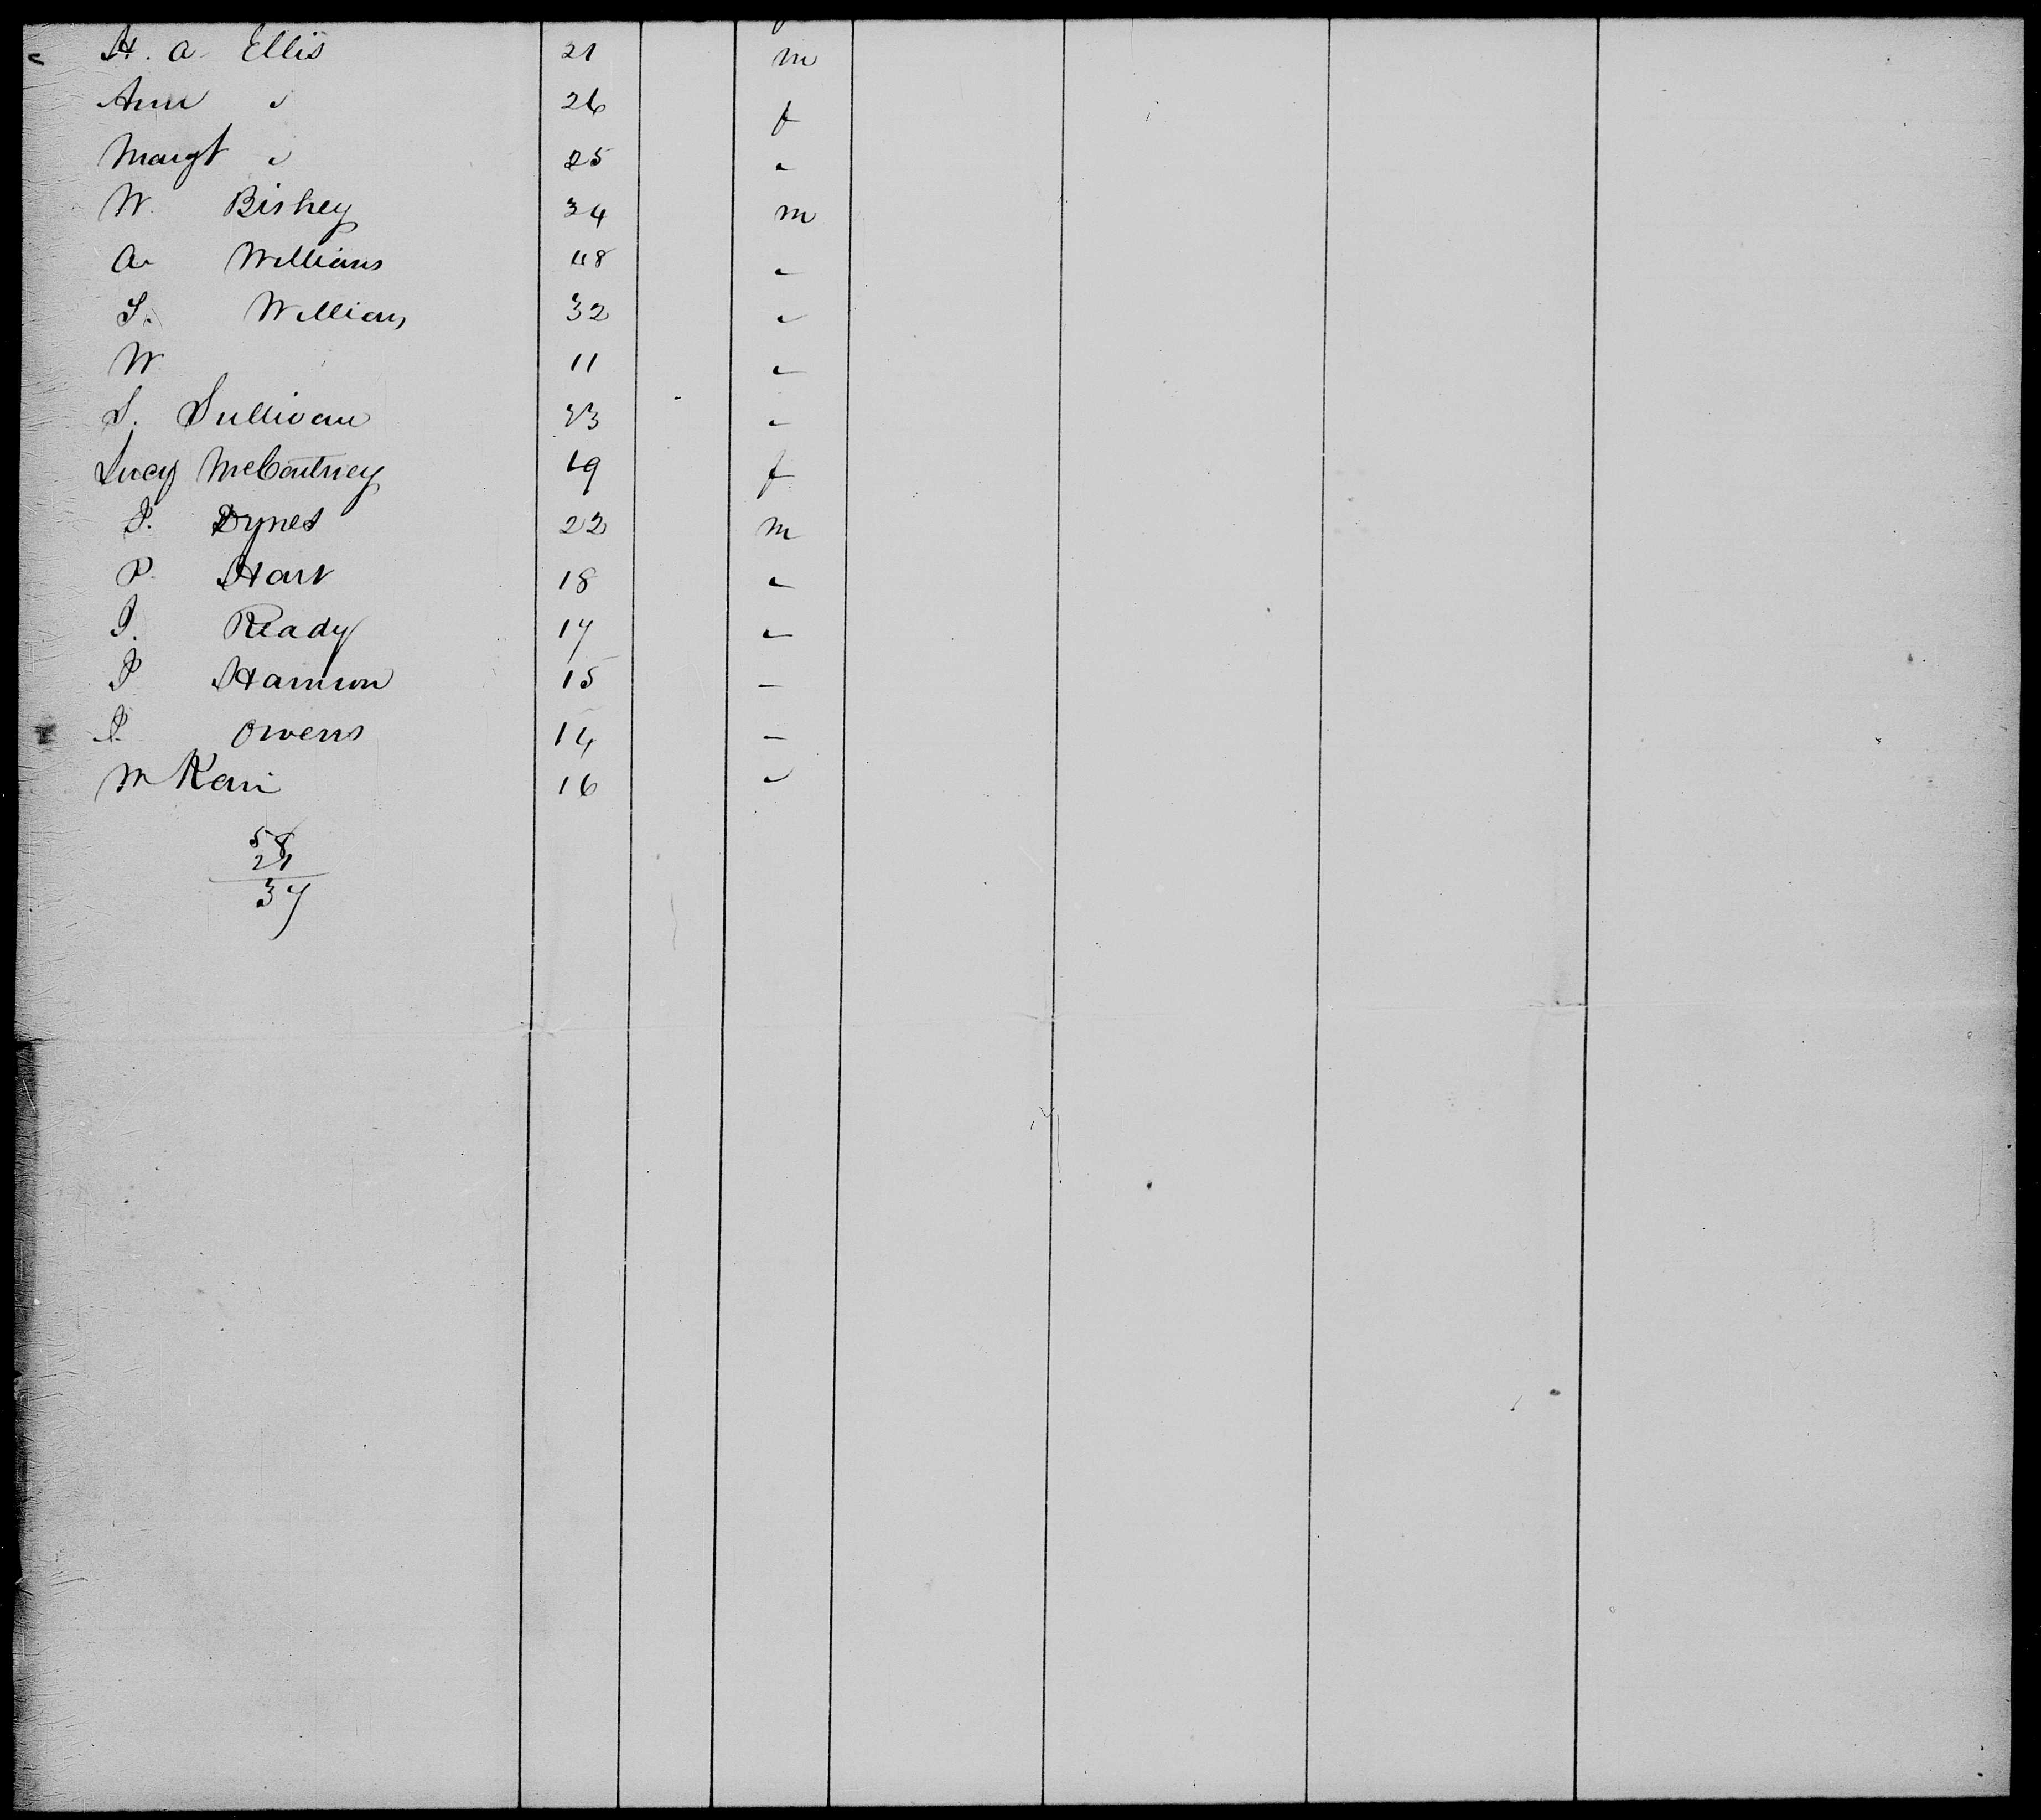 H. A. Ellis 21 m
Ann " 26 f
Margt " 25 "
W. Bishey 34 m
A. Williams 48 "
S. Williams 32 "
W 11 "
S. Sullivan 23 "
Lucy McCartney 19 f
P. Dynes 22 m
P. Hart 18 "
J. Ready 17 "
P Hannon 15 "
P. Owens 14 "
M Kain 16 "
58
21
37